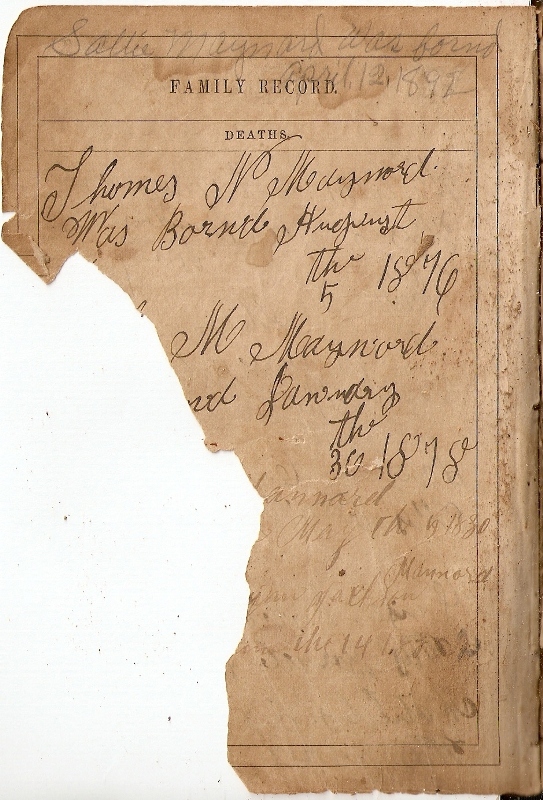 Sallie Maynard was bornd
April 12, 1892
FAMILY RECORD.
DEATHS.
Thomes N Maynord.
Was Bornd Augenst
the
5 1876
M Maynord
nd Janudry
the
30 1878
annard
May th 9 1880
Mannord
in the 14